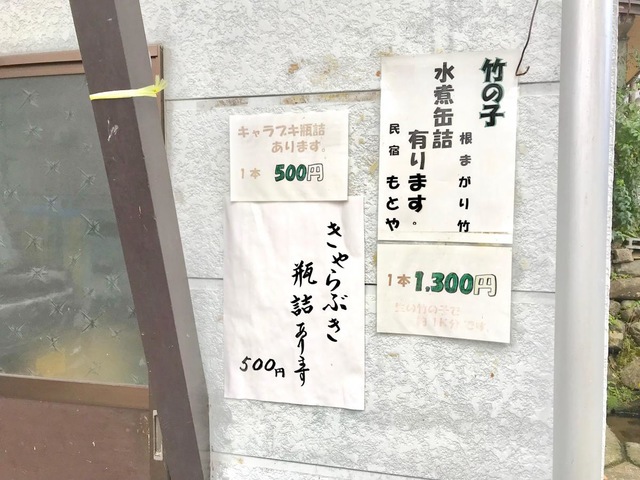 竹の子
根まがり竹
水煮缶詰
有ります。
民宿 もとや
1本 1,300円
キャラブキ瓶詰
あります。
1本 500円
きゃらぶき
瓶詰あります
500円